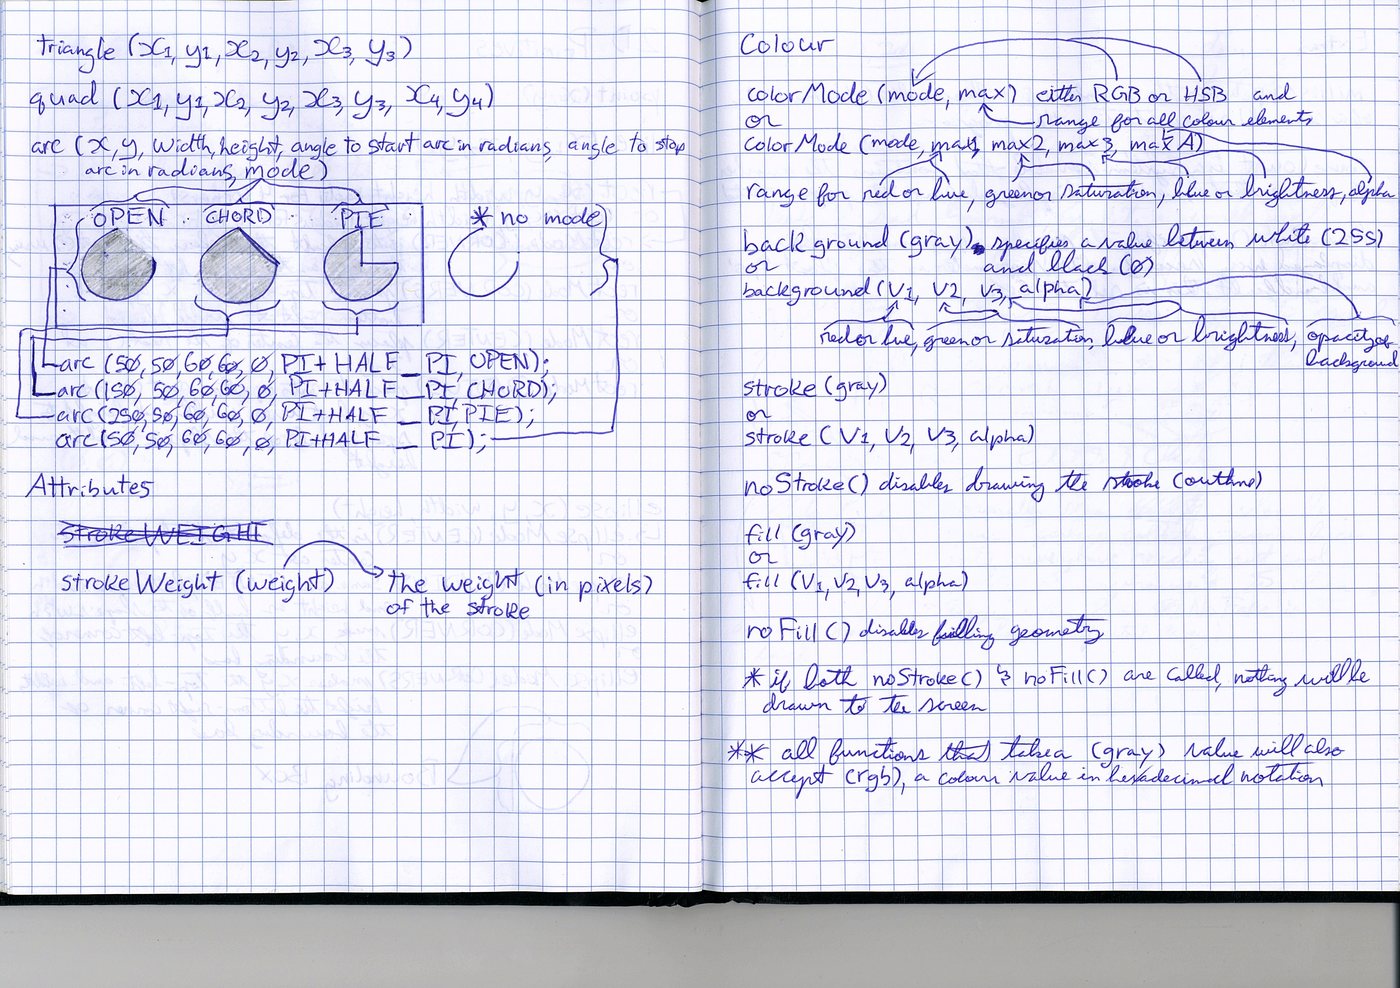 triangle (x1, y1, x2, y2, x3, y3)
quad (x1, y1, x2, y2, x3, y3, x4, y4)
arc (x, y, width, height, angle to start arc in radians, angle to stop
arc in radians, mode)
OPEN CHORD PIE * no mode
arc (50, 50, 60, 60, 0, PI + HALF _ PI, OPEN);
arc (150, 50, 60, 60, 0, PI+HALF _ PI, CHORD);
arc (250, 50, 60, 60, 0, PI+HALF _ PI, PIE);
arc (50, 50, 60, 60, 0, PI+HALF _ PI);
Attributes
strokeWEIGHT
strokeWeight (weight) the weight (in pixels)
of the stroke
Colour
colorMode (mode, max) either RGB or HSB and
or range for all colour elements
colorMode (mode, max1, max2, max3, maxA)
range for red or hue, green or saturation, blue or brightness, alpha
background (gray) specifies a value between white (255)
or and black (0)
background (v1, v2, v3, alpha)
red or hue, green or saturation, blue or brightness, opacity of
background
stroke (gray)
or
stroke (v1, v2, v3, alpha)
noStroke() disables drawing the stroke (outline)
fill (gray)
or
fill (v1, v2, v3, alpha)
noFill() disables filling geometry
* if both noStroke() & noFill() are called, nothing will be
drawn to the screen
** all functions that take a (gray) value will also
accept (rgb), a colour value in hexadecimal notation